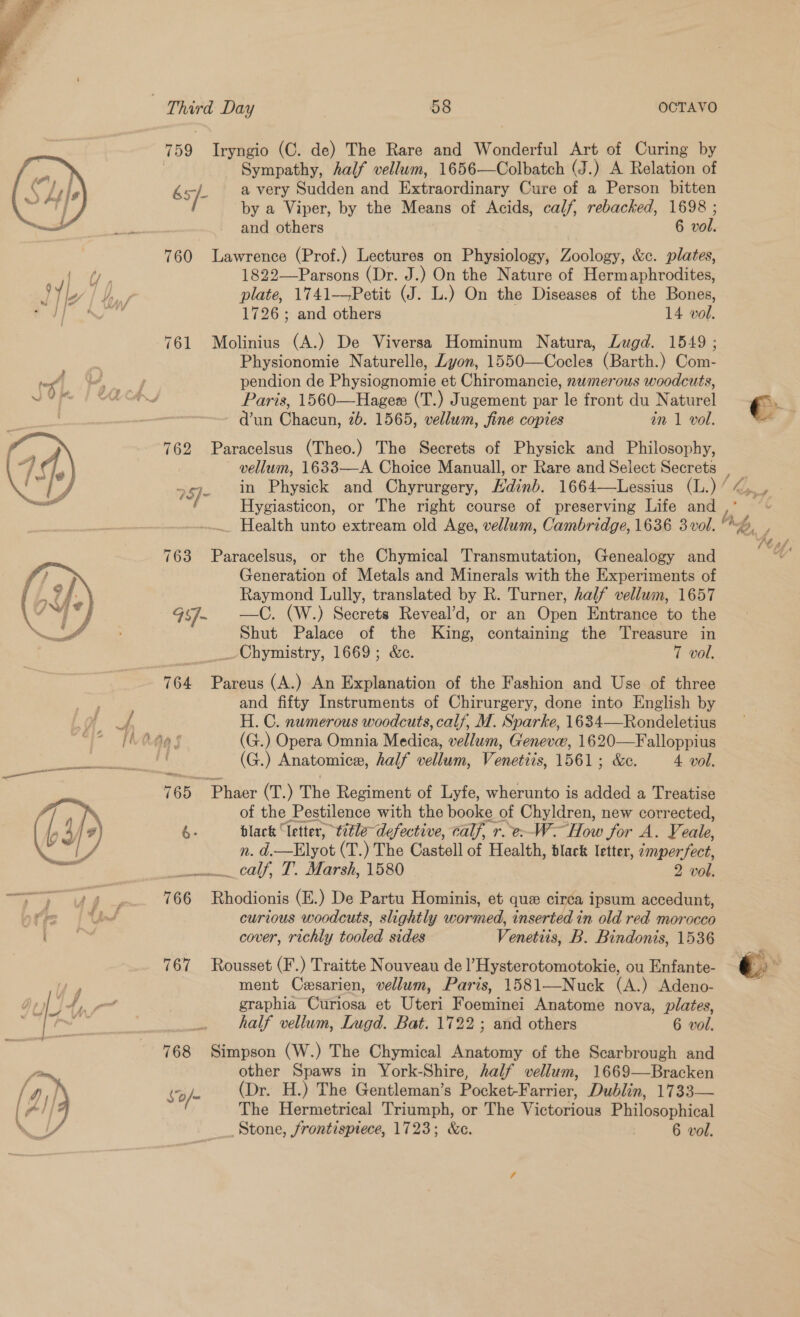 Third Day 58 OCTAVO
759 Iryngio (C. de) The Rare and Wonderful Art of Curing by
Sympathy, half vellum, 1656—Colbatch (J.) A Relation of
65/- a very Sudden and Extraordinary Cure of a Person bitten
by a Viper, by the Means of Acids, calf, rebacked, 1698 ;
and others 6 vol.
760 Lawrence (Prof.) Lectures on Physiology, Zoology, &c. plates,
1822—Parsons (Dr. J.) On the Nature of Hermaphrodites,
plate, 1741—Petit (J. L.) On the Diseases of the Bones,
1726 ; and others 14 vol.
761 Molinius (A.) De Viversa Hominum Natura, Lugd. 1549 ;
Physionomie Naturelle, Lyon, 1550—Cocles (Barth.) Com-
pendion de Physiognomie et Chiromancie, numerous woodcuts,
Paris, 1560—Hageæ (T.) Jugement par le front du Naturel
d'un Chacun, ib. 1565, vellum, fine copies in 1 vol.
762 Paracelsus (Theo.) The Secrets of Physick and Philosophy,
vellum, 1633—A Choice Manuall, or Rare and Select Secrets
75/- in Physick and Chyrurgery, Edinb. 1664—Lessius (L.)
Hygiasticon, or The right course of preserving Life and
Health unto extream old Age, vellum, Cambridge, 1636 3 vol.
763 Paracelsus, or the Chymical Transmutation, Genealogy and
Generation of Metals and Minerals with the Experiments of
Raymond Lully, translated by R. Turner, half vellum, 1657
95/- —C. (W.) Secrets Reveal'd, or an Open Entrance to the
Shut Palace of the King, containing the Treasure in
Chymistry, 1669 ; &c. 7 vol.
764 Pareus (A.) An Explanation of the Fashion and Use of three
and fifty Instruments of Chirurgery, done into English by
H. C. numerous woodcuts, calf, M. Sparke, 1634—Rondeletius
(G.) Opera Omnia Medica, vellum, Genevæ, 1620—Falloppius
(G.) Anatomicæ, half vellum, Venetiis, 1561 ; &c. 4 vol.
765 Phaer (T.) The Regiment of Lyfe, wherunto is added a Treatise
of the Pestilence with the booke of Chyldren, new corrected,
6- black letter, title defective, calf, r. e. W. How for A. Veale,
n. d.—Elyot (T.) The Castell of Health, black letter, imperfect,
calf, T. Marsh, 1580 2 vol.
766 Rhodionis (E.) De Partu Hominis, et quæ circa ipsum accedunt,
curious woodcuts, slightly wormed, inserted in old red morocco
cover, richly tooled sides Venetiis, B. Bindonis, 1536
767 Rousset (F.) Traitte Nouveau de l'Hysterotomotokie, ou Enfante-
ment Cæsarien, vellum, Paris, 1581—Nuck (A.) Adeno-
graphia Curiosa et Uteri Foeminei Anatome nova, plates,
half vellum, Lugd. Bat. 1722 ; and others 6 vol.
768 Simpson (W.) The Chymical Anatomy of the Scarbrough and
other Spaws in York-Shire, half vellum, 1669—Bracken
50/- (Dr. H.) The Gentleman's Pocket-Farrier, Dublin, 1733—
The Hermetrical Triumph, or The Victorious Philosophical
Stone, frontispiece, 1723; &c. 6 vol.